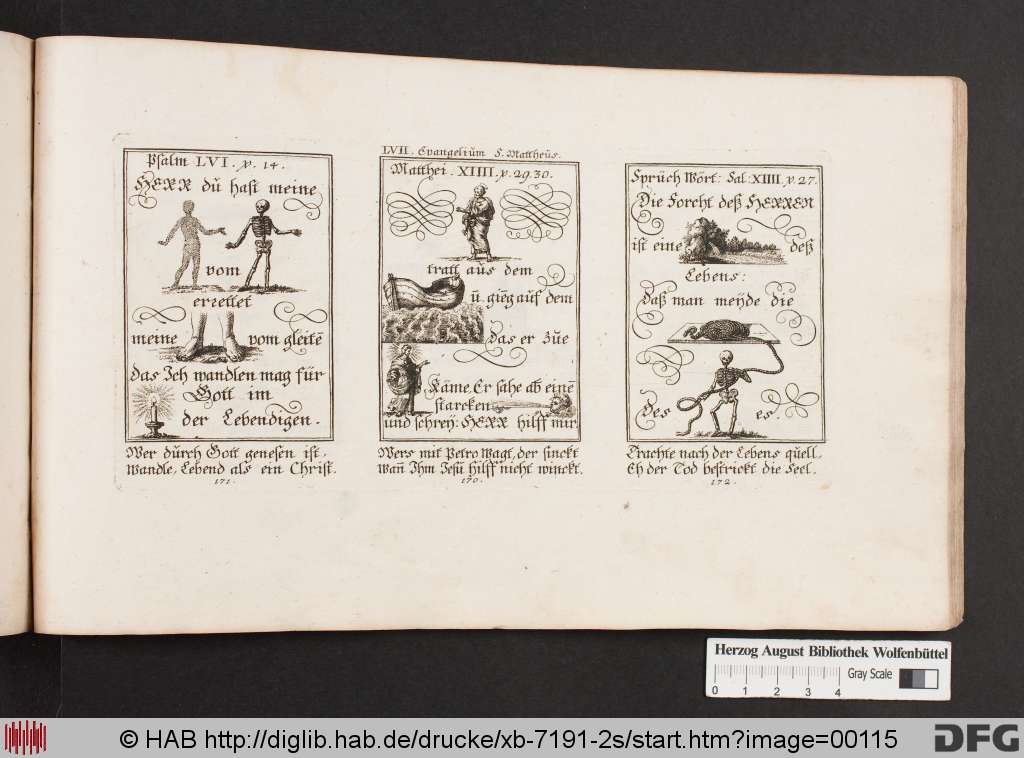 Psalm LVI. v. 14.
HERR dŭ hast meine
vom
erꝛettet
meine vom gleitē
das Ich wandlen mag für
Gott im
der Lebendigen.
Wer dŭrch Gott genesen ist,
Wandle, Lebend als ein Christ.
171.
LVII. Evangeliŭm S. Mattheŭs.
Matthei. XIIII. v. 29.30.
tratt aŭs dem
ŭ. gieg aŭf dem
Das er zŭe
Käme. Er sahe ab einē
starcken
und schrey: HERR hilff mir.
Wers mit Petro Wagt, der sinckt
Wañ Ihm Jesŭ hilff nicht winckt.
170.
Sprŭch Wört: Sal: XIIII. v. 27.
Die Forcht deß HERREN
ist eine deß
Lebens:
Daß man meyde die
Des es.
Trachte nach der Lebens qŭell,
Eh der Tod bestrickt die Seel.
172.
Herzog August Bibliothek Wolfenbüttel
0 1 2 3 4 Gray Scale
© HAB http://diglib.hab.de/drucke/xb-7191-2s/start.htm?image=00115
DFG